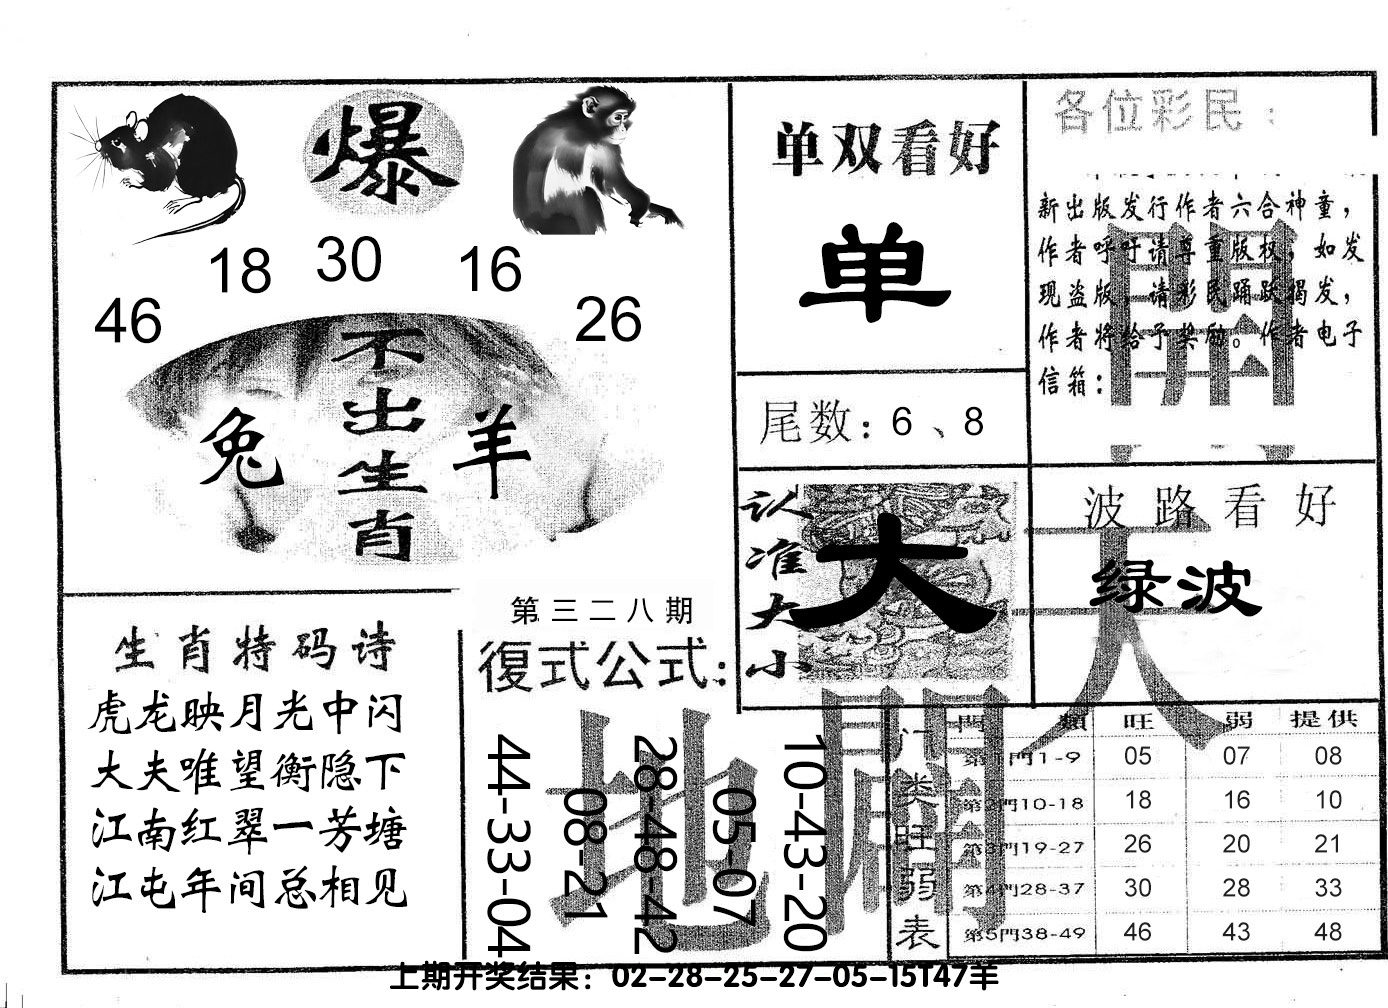 爆
18 30 16
46 26
不出生肖
兔 羊
单双看好
单
尾数：6、8
各位彩民：
新出版发行作者六合神童，
作者呼吁请尊重版权，如发
现盗版，请彩民踊跃揭发，
作者将给予奖励。作者电子
信箱：
認准大小
大
波路看好
绿波
天
地
開
生肖特码诗
虎龙映月光中闪
大夫唯望衡隐下
江南红翠一芳塘
江屯年间总相见
第三二八期
復式公式：
44-33-04
08-21
28-48-42
05-07
10-43-20
门类旺弱表
門類 旺 弱 提供
第1門1-9 05 07 08
第2門10-18 18 16 10
第3門19-27 26 20 21
第4門28-37 30 28 33
第5門38-49 46 43 48
上期开奖结果：02-28-25-27-05-15T47羊